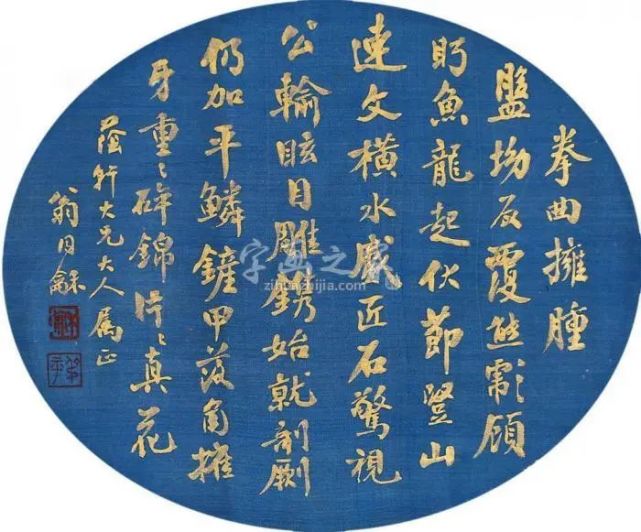 拳曲擁腫
盤坳反覆熊彪顧
眄魚龍起伏節豎山
連文橫水蹙匠石驚視
公輸眩目雕鐫始就剞劂
仍加平鱗鏟甲落角摧
牙重〻碎錦片〻真花
蔭軒大兄大人屬正
翁同龢
字画之家
zihuazhijia.com